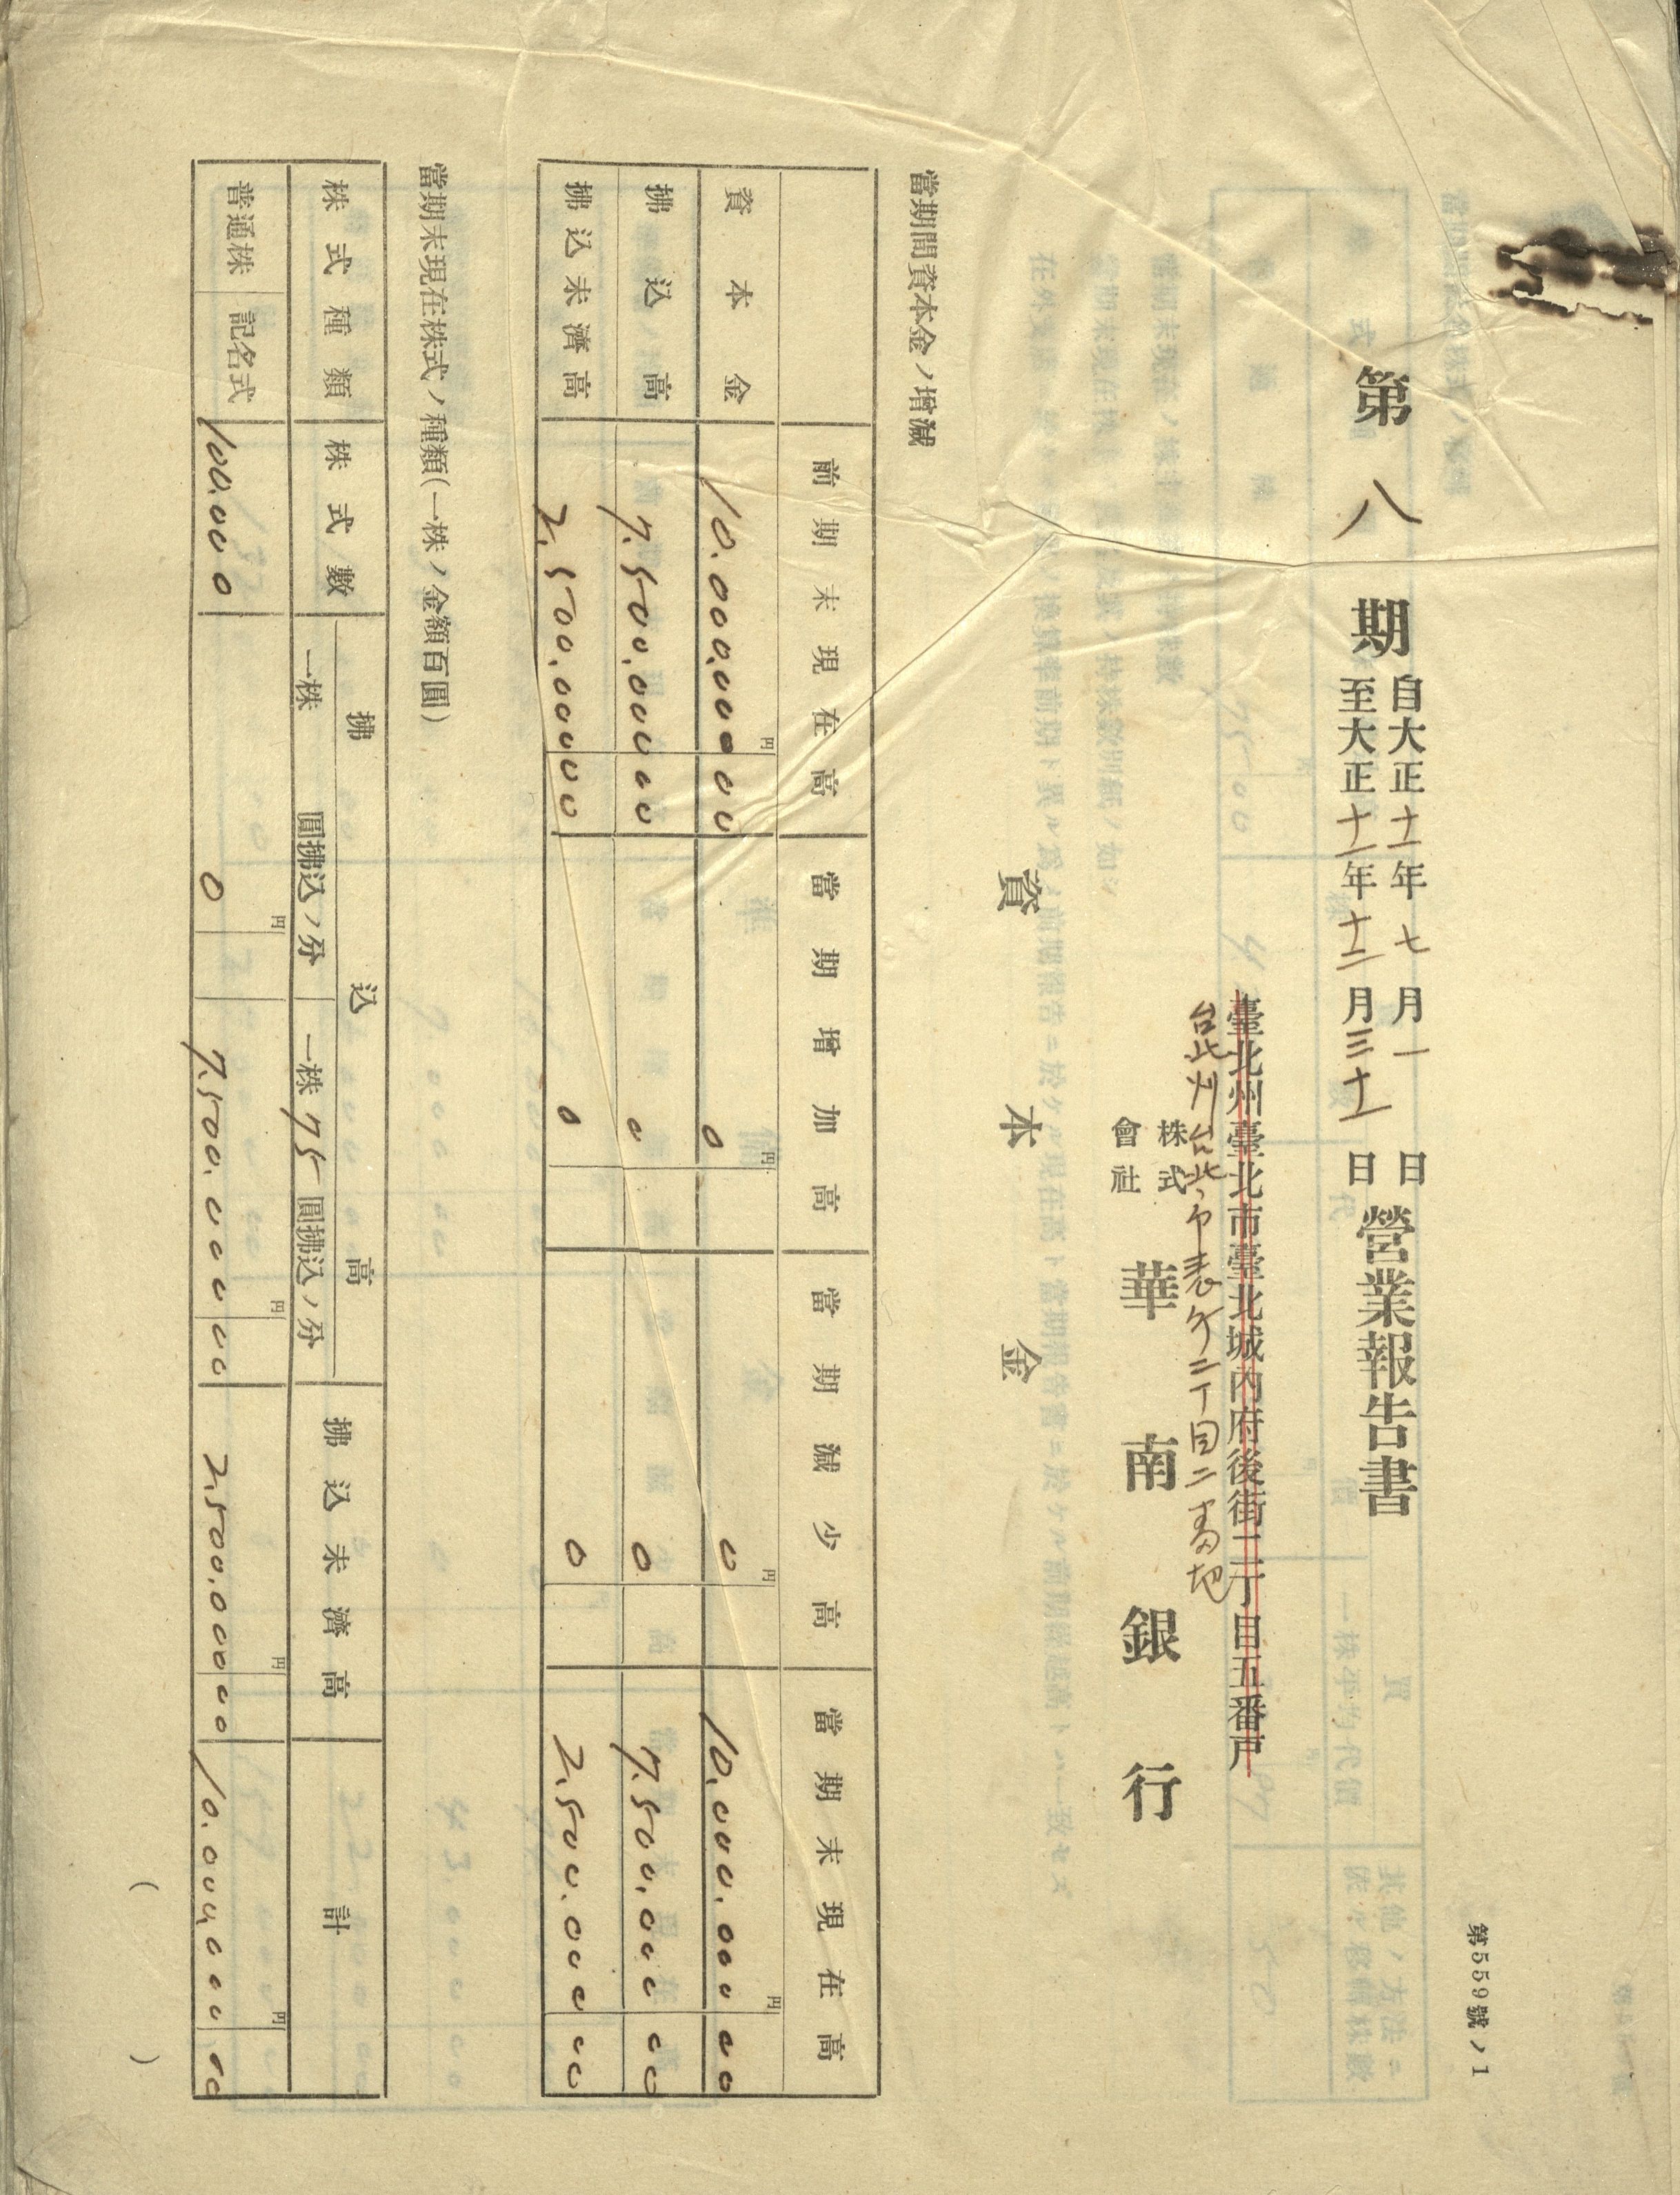 第559號ノ1
第八期 自大正十一年七月一日 至大正十一年十二月三十一日 營業報告書
臺北州臺北市臺北城內府後街二丁目五番戸
台北州台北市表町二丁目二番地
株式會社 華南銀行
資本金
當期間資本金ノ增減
前期末現在高 當期增加高 當期減少高 當期末現在高
資本金 10.000.000 00 0 0 10.000.000 00
拂込高 7.500.000 00 0 0 7.500.000 00
拂込未濟高 2.500.000 00 0 0 2.500.000 00
當期末現在株式ノ種類(一株ノ金額百圓)
株式種類 株式數 拂込高 拂込未濟高 計
一株 圓拂込ノ分 一株75圓拂込ノ分
普通株 記名式 100.000 0 7.500.000 00 2.500.000 00 10.000.000 00
( )